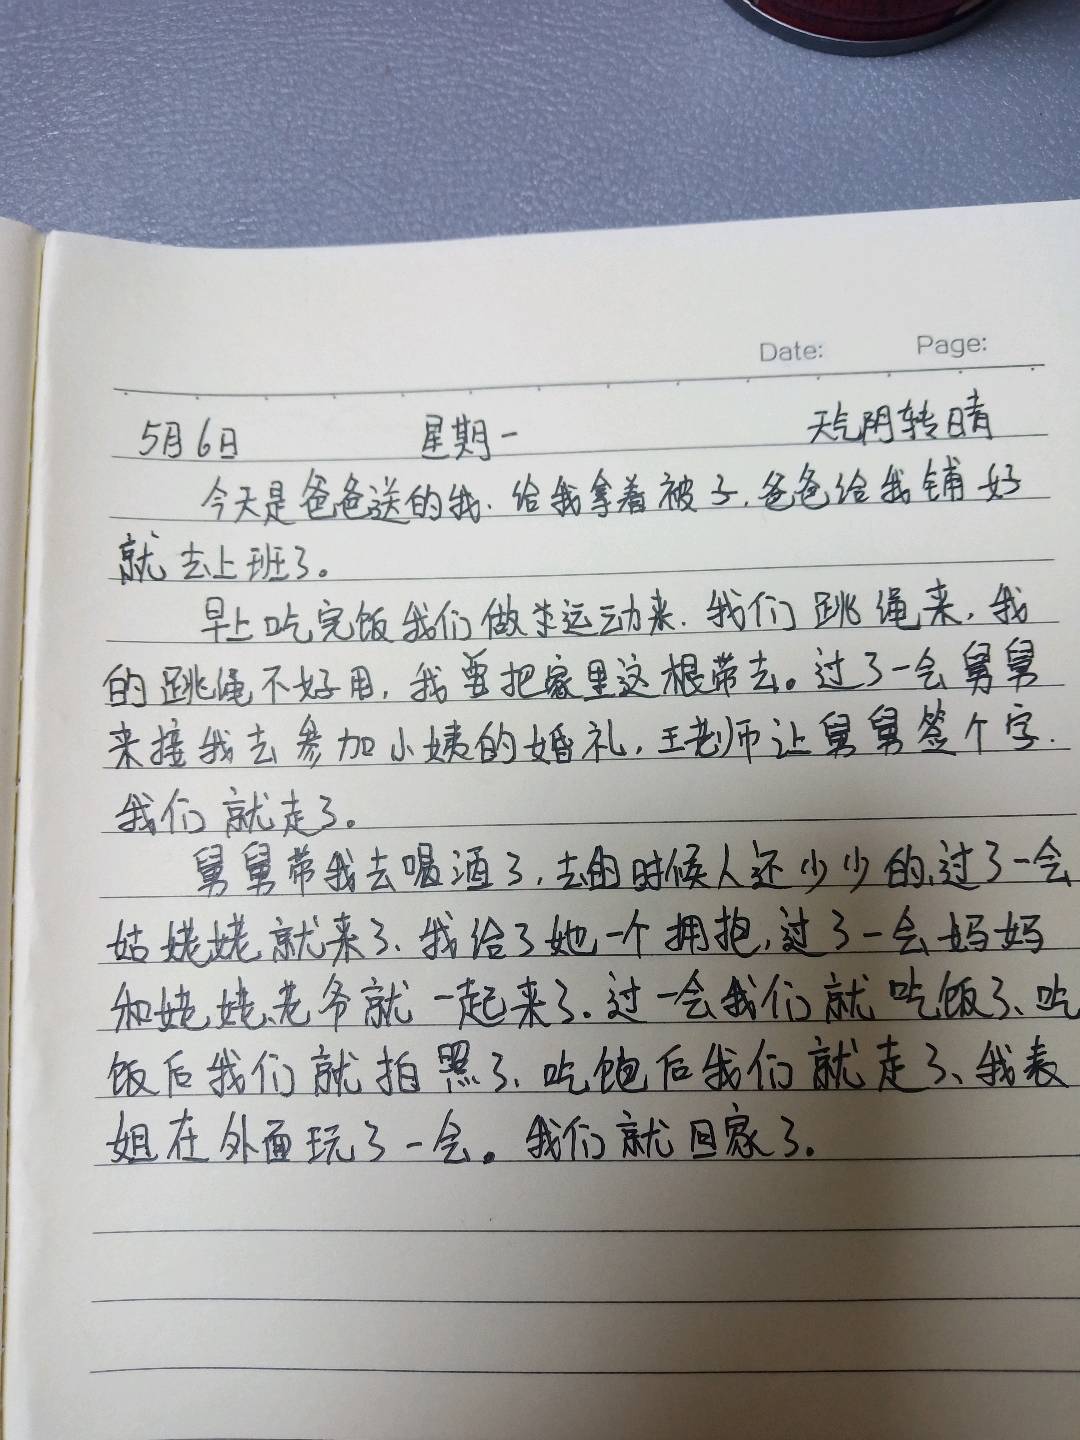 Date: Page:
5月6日 星期一 天气阴转晴
今天是爸爸送的我、给我拿着被子,爸爸给我铺好
就去上班了。
早上吃完饭我们做半运动来.我们跳绳来,我
的跳绳不好用,我要把家里这根带去。过了一会舅舅
来接我去参加小姨的婚礼,王老师让舅舅签个字.
我们就走了。
舅舅带我去喝酒了,去的时候人还少少的,过了一会
姑姥姥就来了、我给了她一个拥抱,过了一会妈妈
和姥姥、老爷就一起来了.过一会我们就吃饭了、吃
饭后我们就拍照了、吃饱后我们就走了、我表
姐在外面玩了一会。我们就回家了.